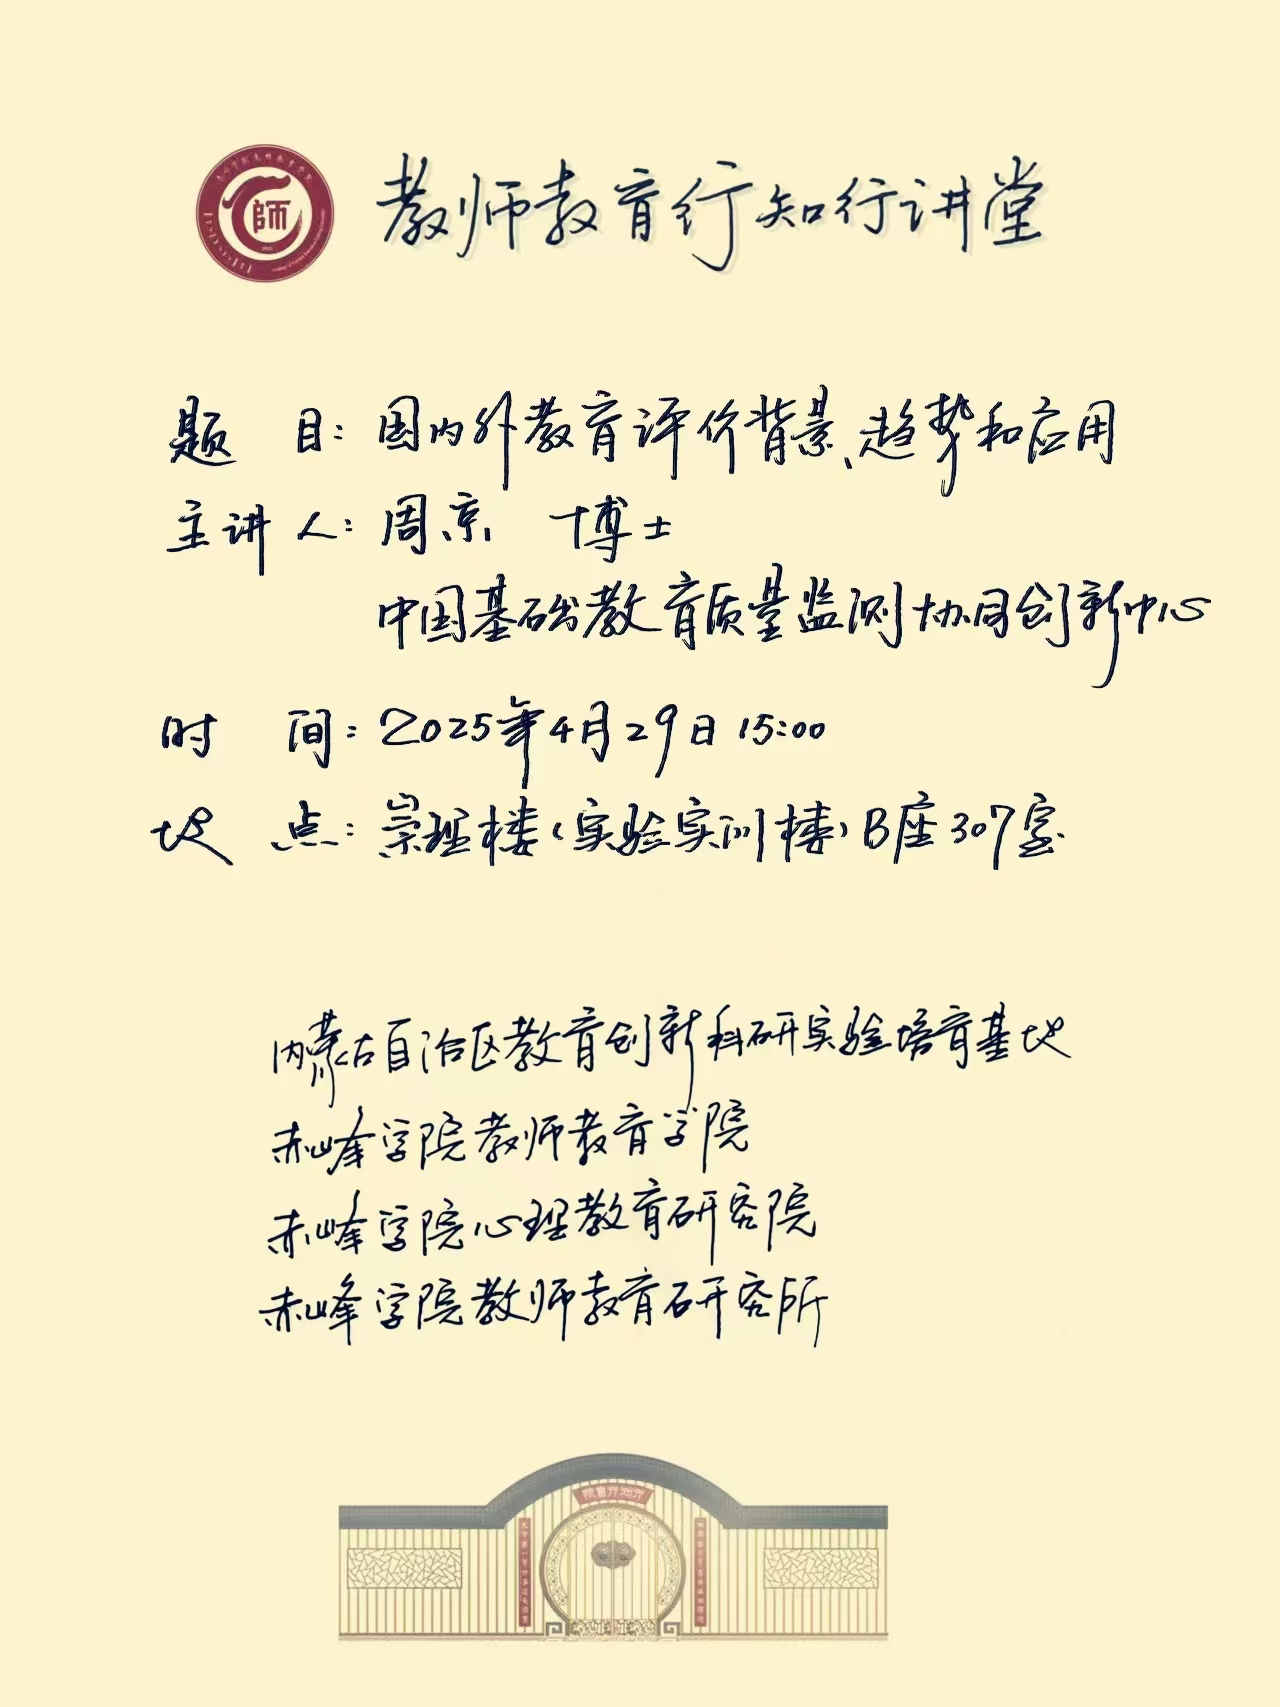 師
教师教育行知行讲堂
题 目：国内外教育评价背景、趋势和应用
主讲人：周京 博士
中国基础教育质量监测协同创新中心
时 间：2025年4月29日 15:00
地 点：崇理楼（实验实训楼）B座307室
内蒙古自治区教育创新科研实验培育基地
赤峰学院教师教育学院
赤峰学院心理教育研究院
赤峰学院教师教育研究所